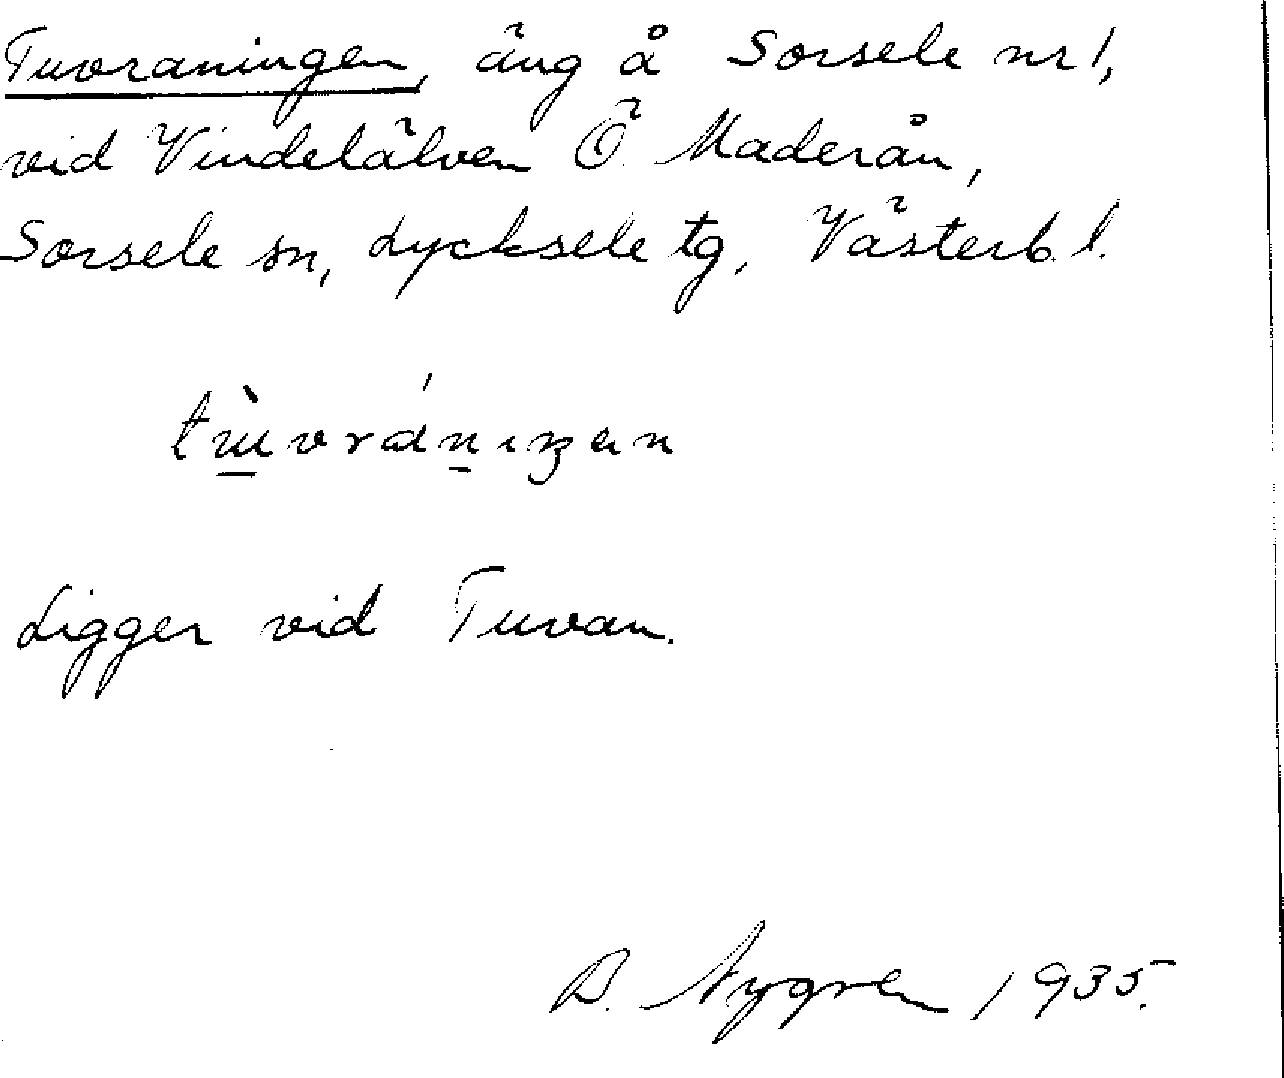 Tuvraningen, äng å Sorsele nr 1,
vid Vindelälven Ö. Maderån,
Sorsele sn, Lycksele tg, Västerb. l.
Ligger vid Tuvan.
B. Nygren 1935.